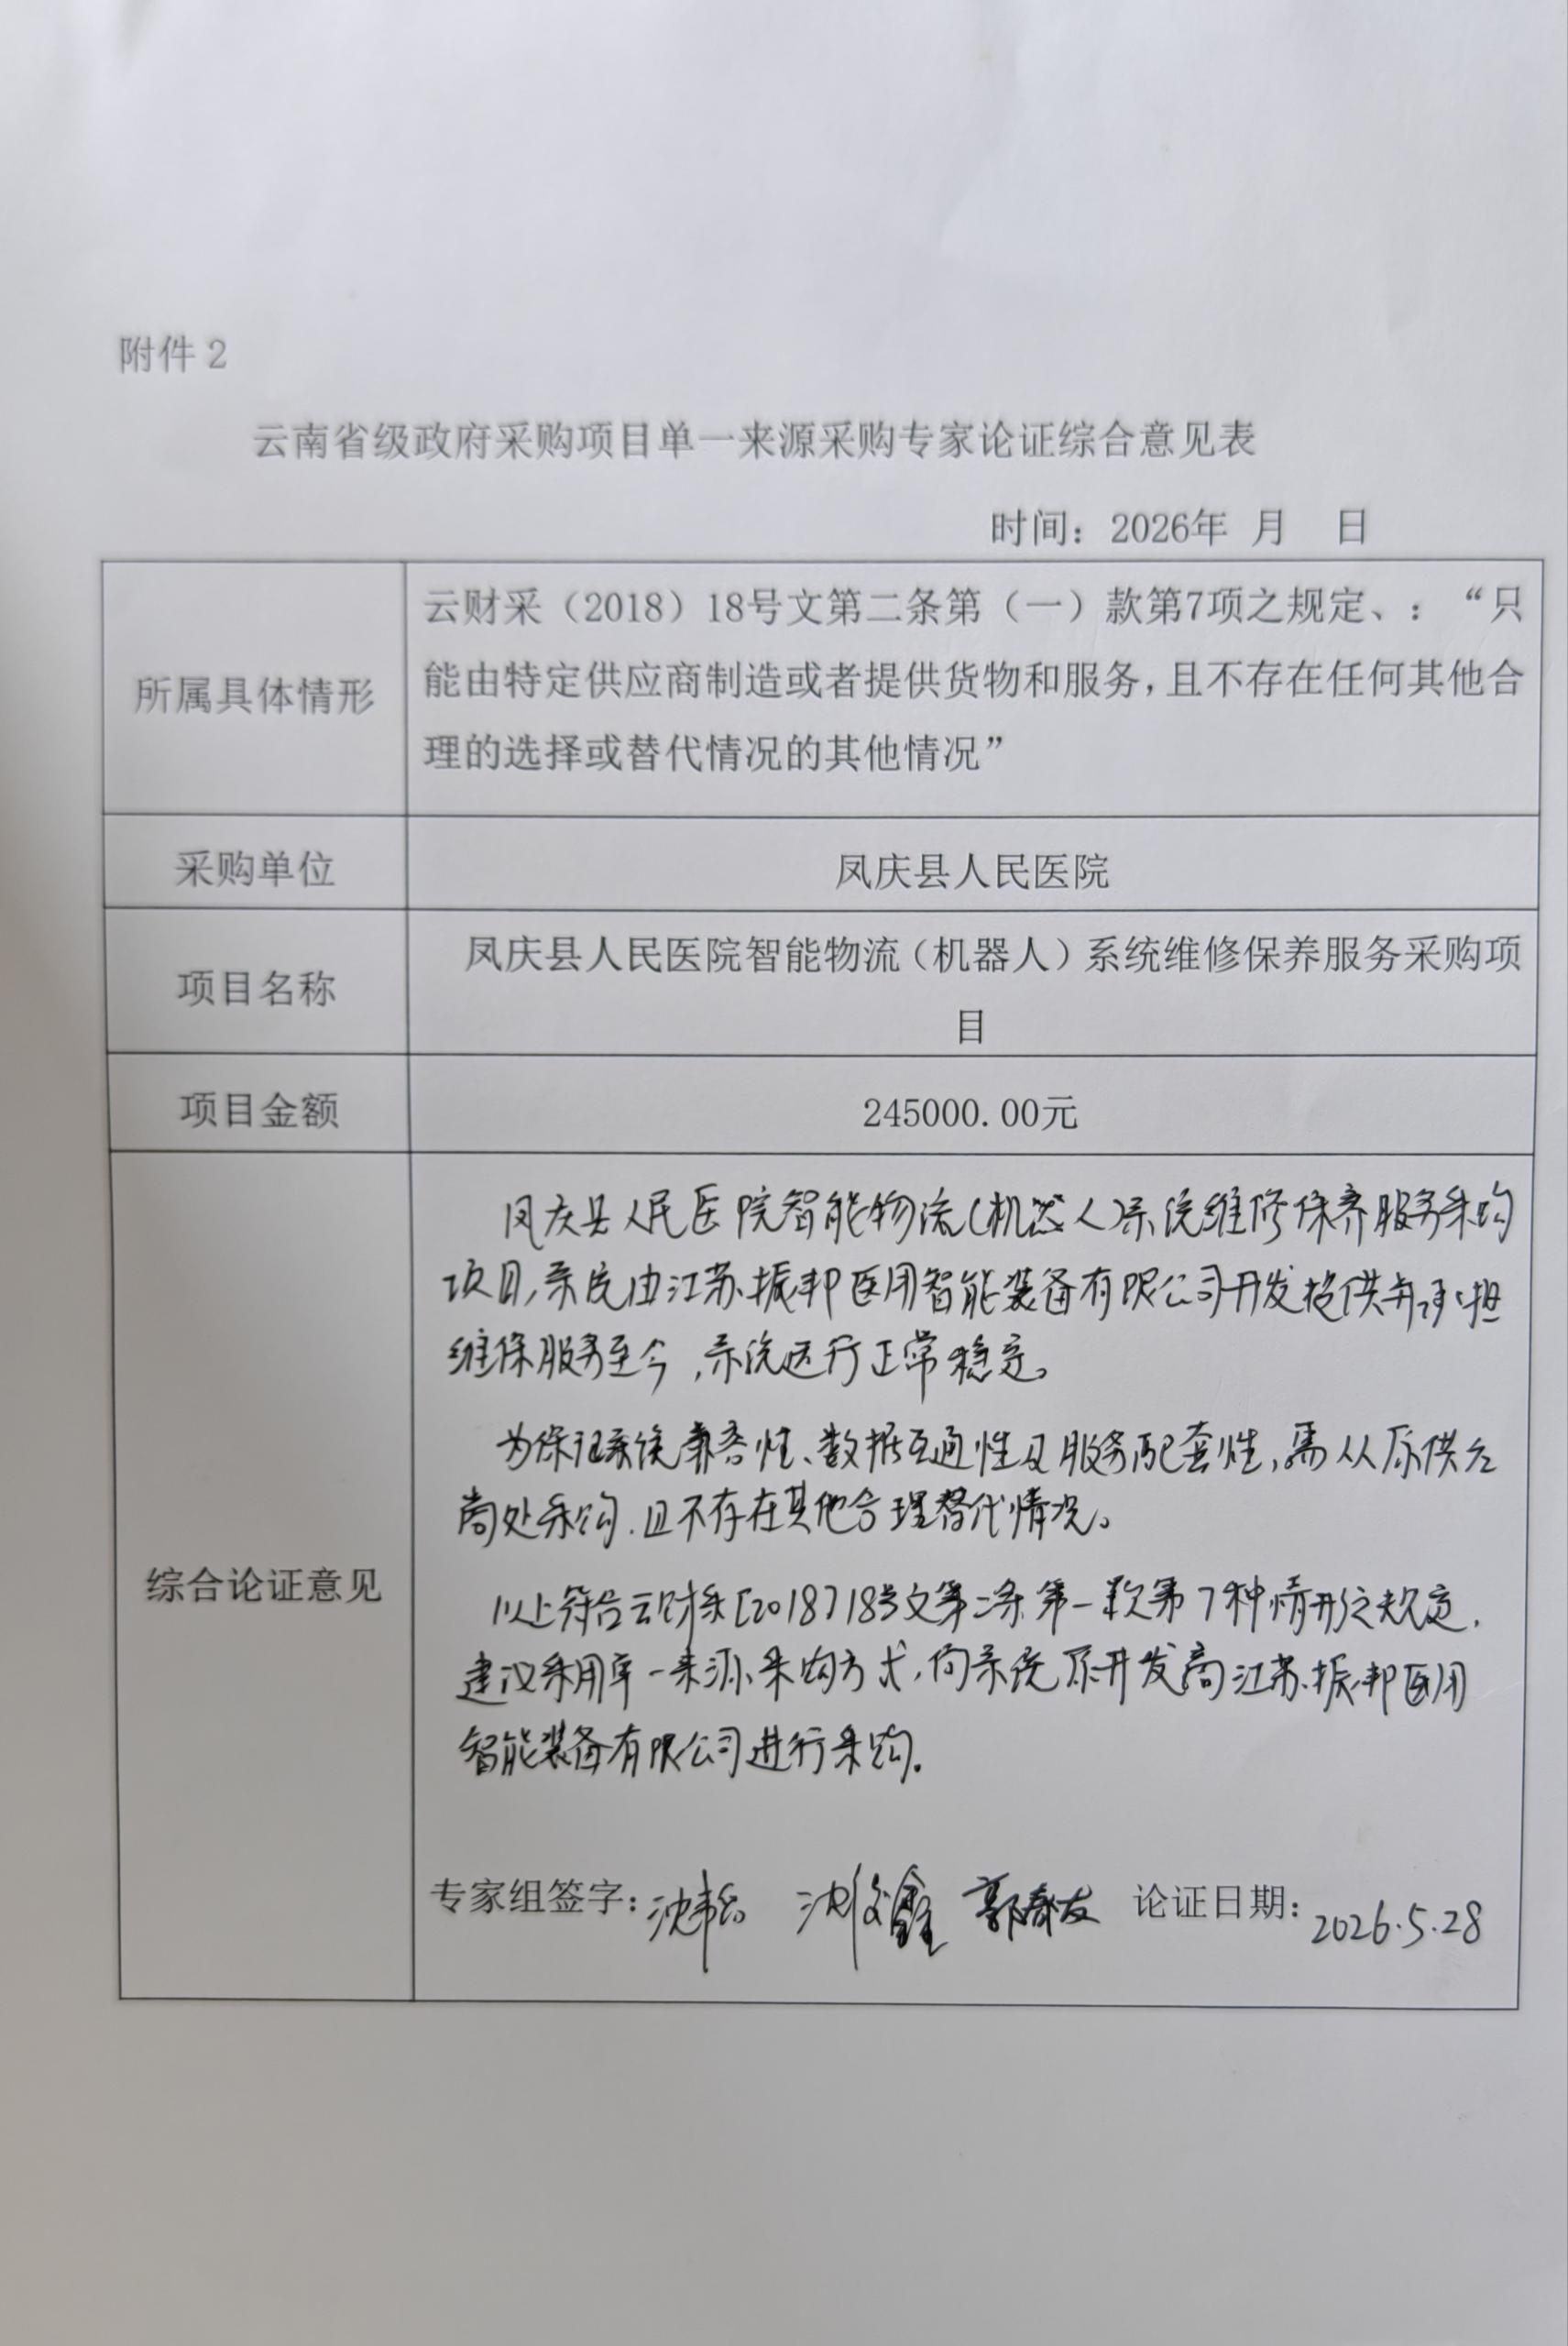 附件2
云南省级政府采购项目单一来源采购专家论证综合意见表
时间：2026年 月 日
所属具体情形
云财采（2018）18号文第二条第（一）款第7项之规定、：“只
能由特定供应商制造或者提供货物和服务，且不存在任何其他合
理的选择或替代情况的其他情况”
采购单位
凤庆县人民医院
项目名称
凤庆县人民医院智能物流（机器人）系统维修保养服务采购项
目
项目金额
245000.00元
综合论证意见
凤庆县人民医院智能物流(机器人)系统维修保养服务采购
项目,系统由江苏振邦医用智能装备有限公司开发提供并承担
维保服务至今,系统运行正常稳定。
为保证系统兼容性、数据互通性及服务配套性,需从原供应
商处采购.且不存在其他合理替代情况。
以上符合云财采[2018]18号文第二条第一款第7种情形之规定,
建议采用单一来源采购方式,向系统原开发商江苏振邦医用
智能装备有限公司进行采购.
专家组签字： 郭春友 论证日期：2026.5.28